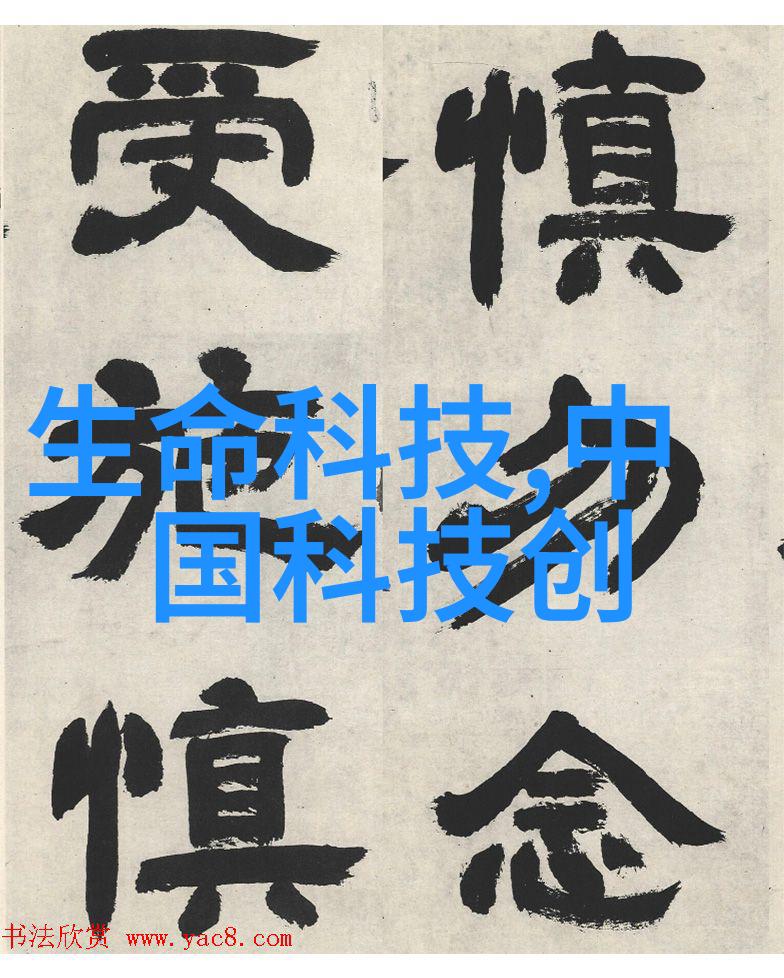 慎勿念
受施慎
生命科技,中
国科技创
书法欣赏 www.yac8.com